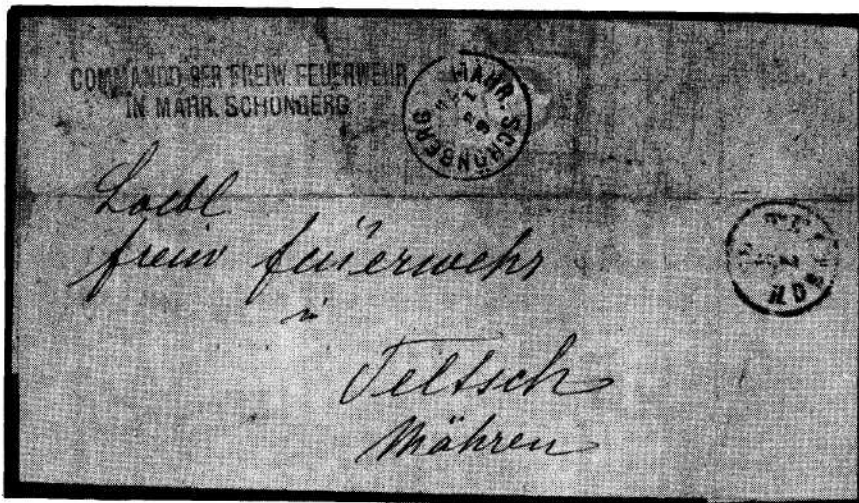 COMMANDO DER FREIW. FEUERWEHR
IN MÄHR. SCHÖNBERG
MÄHR. SCHÖNBERG
Loebl
freiw feuerwehr
in
Teltsch
Mähren